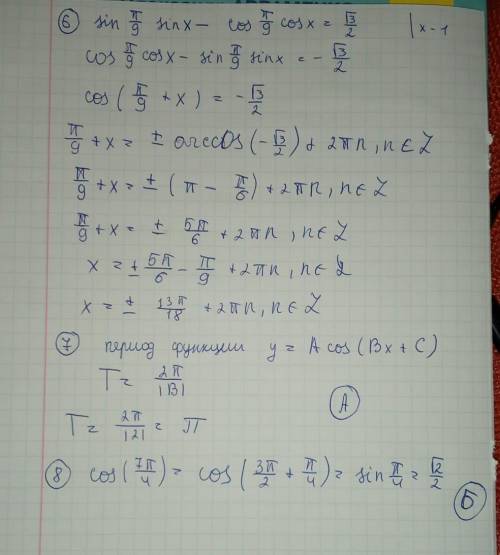 ⑥ sin π/9 sinx - cos π/9 cosx = √3/2 | x-1
cos π/9 cosx - sin π/9 sinx = - √3/2
cos(π/9 + x) = - √3/2
π/9 + x = ± arccos(-√3/2) + 2πn, n ∈ Z
π/9 + x = ± (π - π/6) + 2πn, n ∈ Z
π/9 + x = ± 5π/6 + 2πn, n ∈ Z
x = ± 5π/6 - π/9 + 2πn, n ∈ Z
x = ± 13π/18 + 2πn, n ∈ Z
⑦ период функции y = A cos(Bx + C)
T = 2π/|B|
А
T = 2π/|2| = π
⑧ cos(7π/4) = cos(3π/2 + π/4) = sin π/4 = √2/2
Б